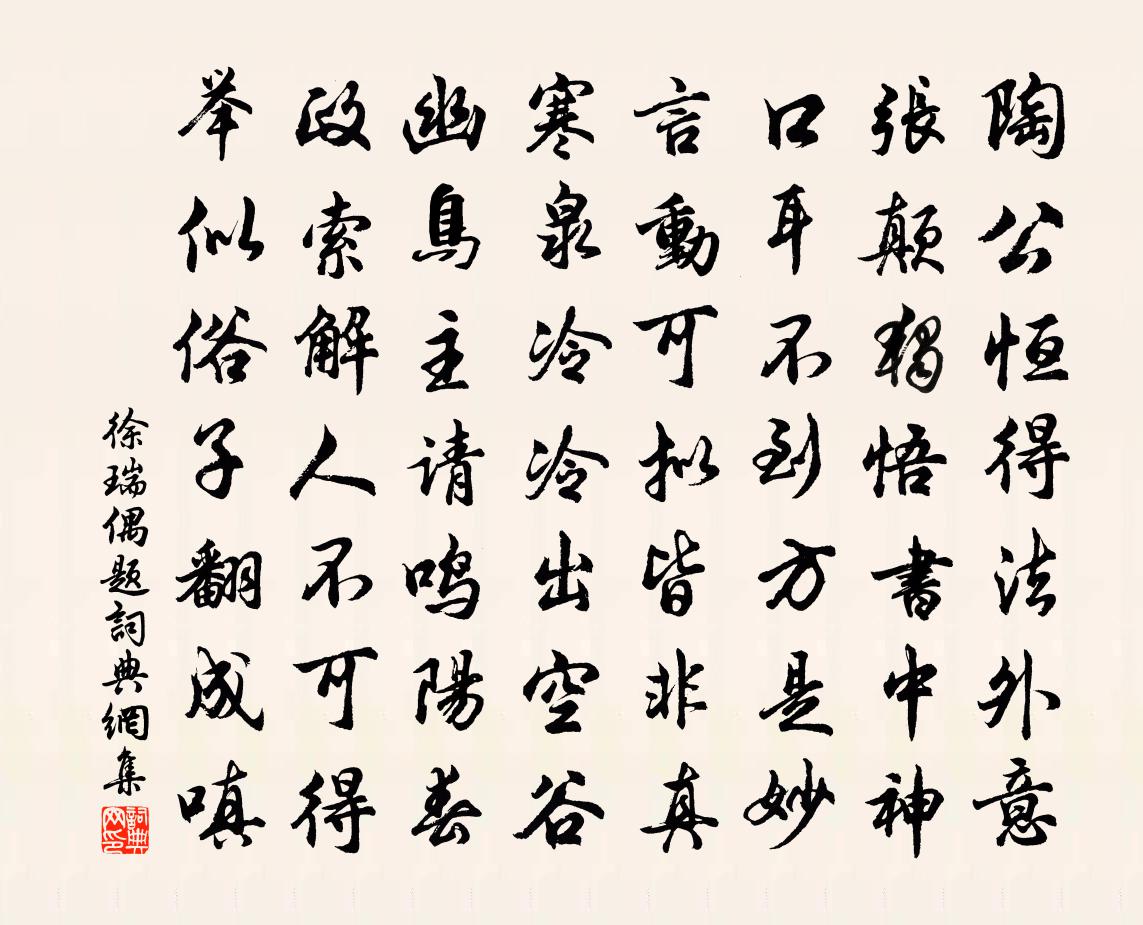 陶公恒得法外意
張顛獨悟書中神
口耳不到方是妙
言動可拟皆非真
寒泉冷冷出空谷
幽鳥主请鸣陽春
政索解人不可得
举似俗子翻成嗔
徐瑞偶题詞典網集
詞典网印